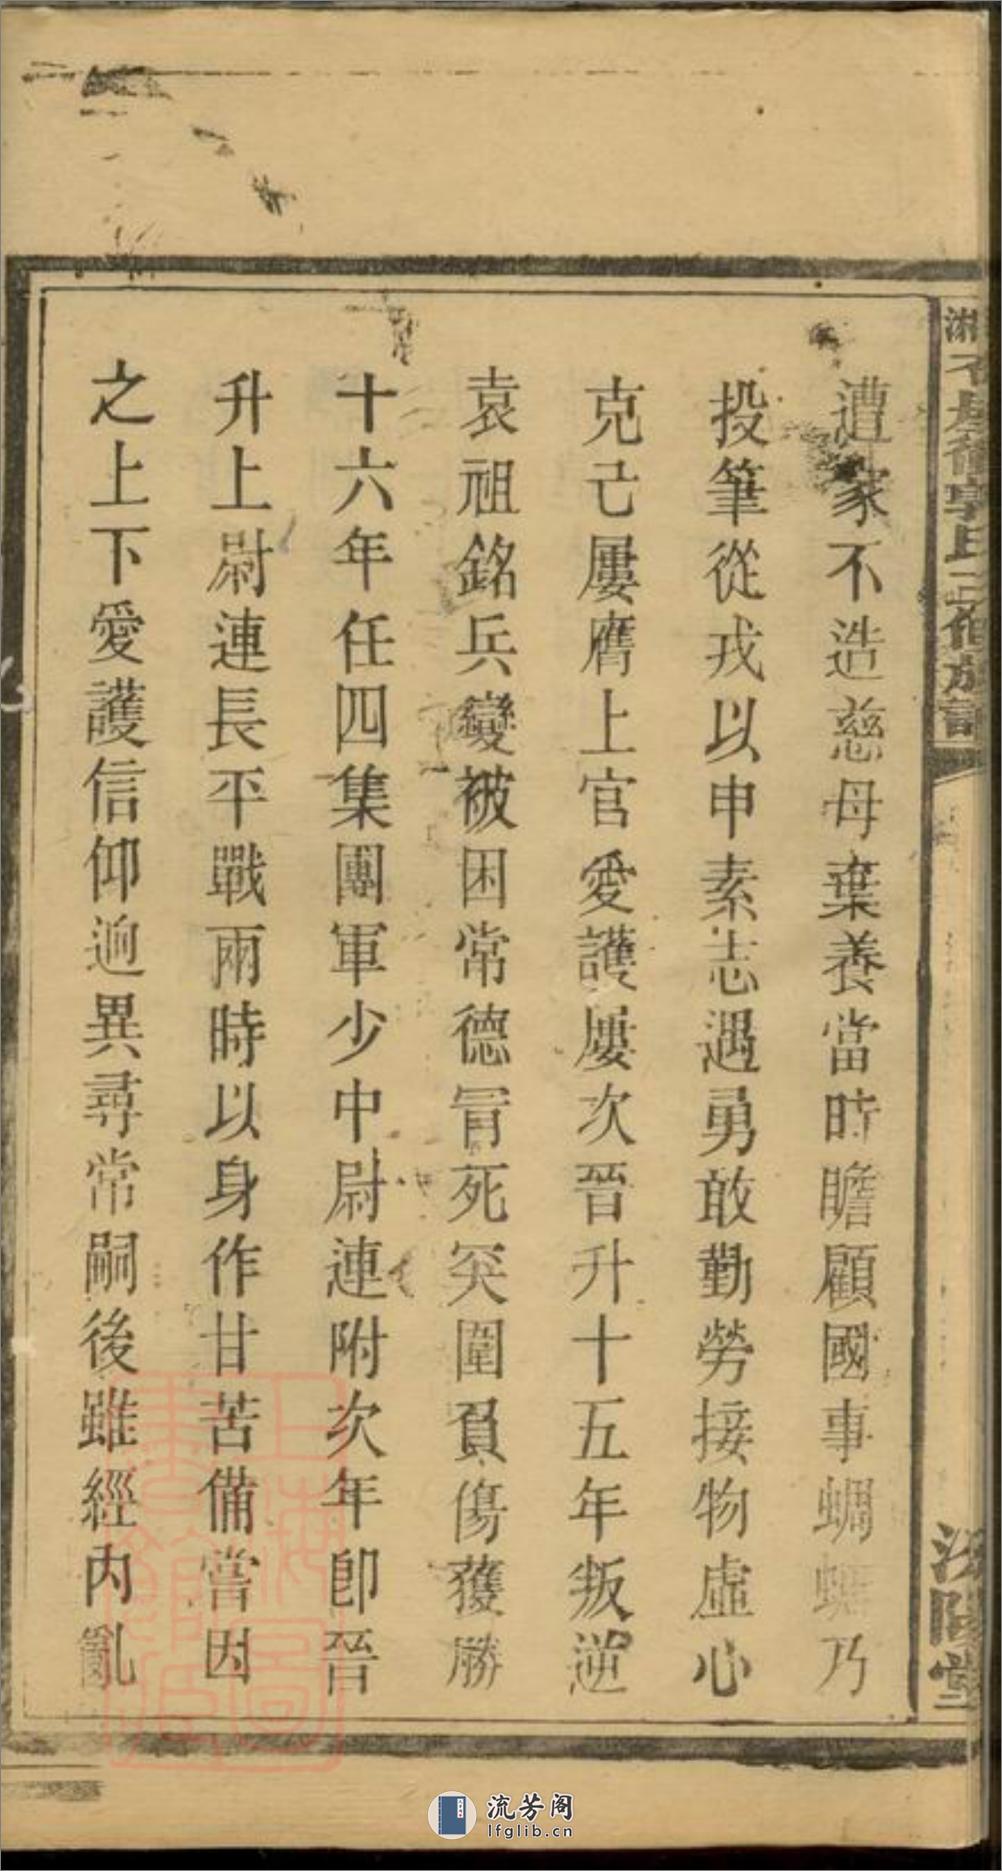 遭家不造慈母棄養當時瞻顧國事蜩螗乃
投筆從戎以申素志遇勇敢勤勞接物虛心
克己屢膺上官愛護屢次晉升十五年叛逆
袁祖銘兵變被困常德冒死突圍負傷獲勝
十六年任四集團軍少中尉連附次年卽晉
升上尉連長平戰兩時以身作甘苦備嘗因
之上下愛護信仰迥異尋常嗣後雖經內亂
郭氏三修族譜
汾陽堂
上海圖書館藏
流芳阁
lfglib.cn